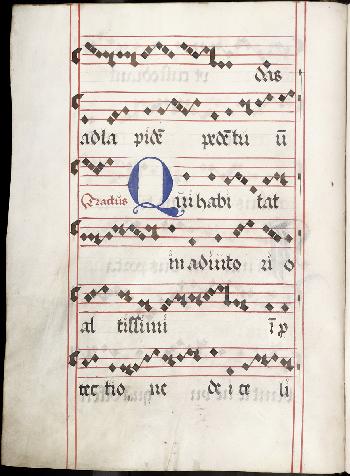 das
ad la pidē pedē tu ū
Tractus Qui habi tat
in adiuto ri o
al tissimi ī p
tec tio ne de i ce li